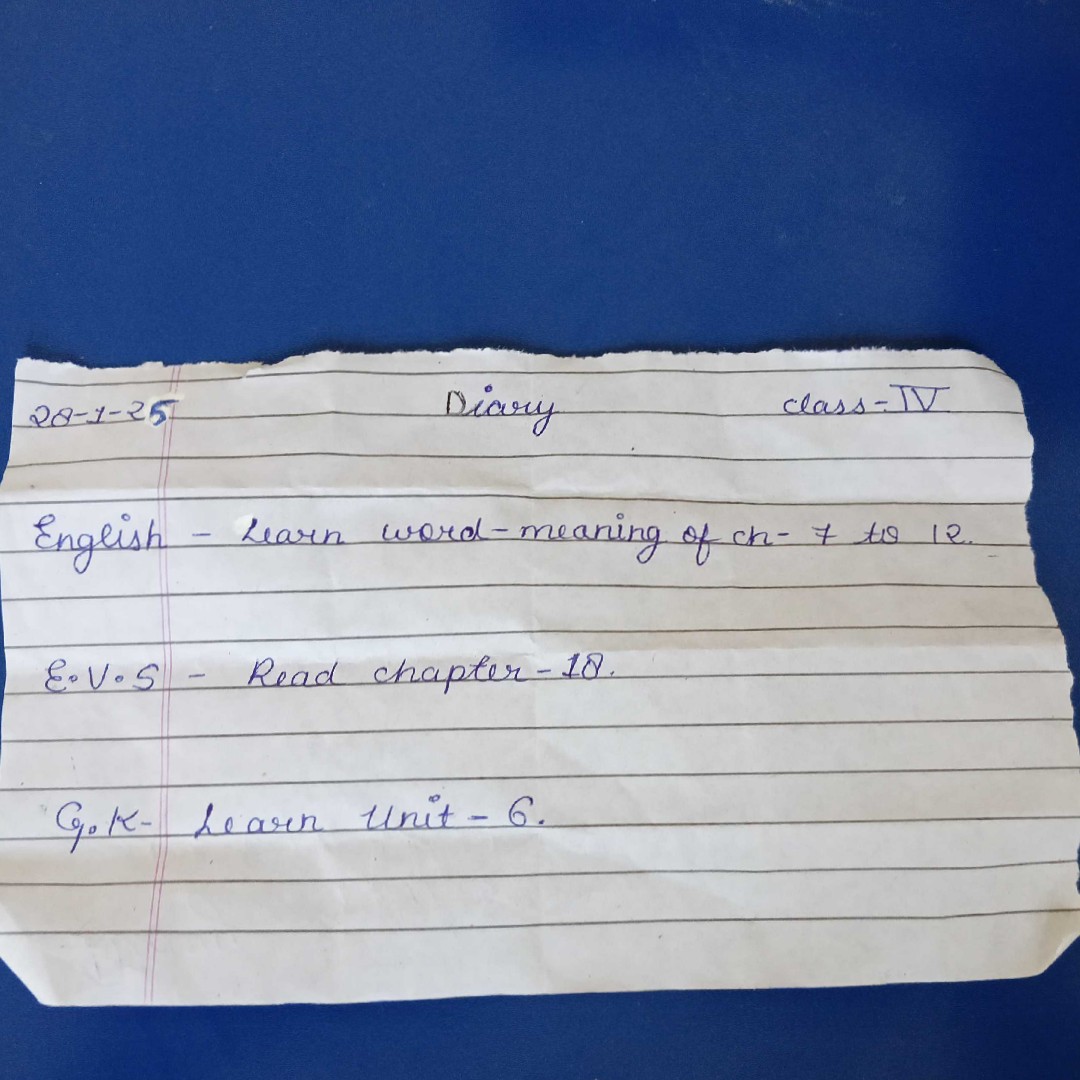 28-1-25 Diary class-IV
English - Learn word-meaning of ch- 7 to 12.
E.V.S - Read chapter-18.
G.K- Learn Unit - 6.